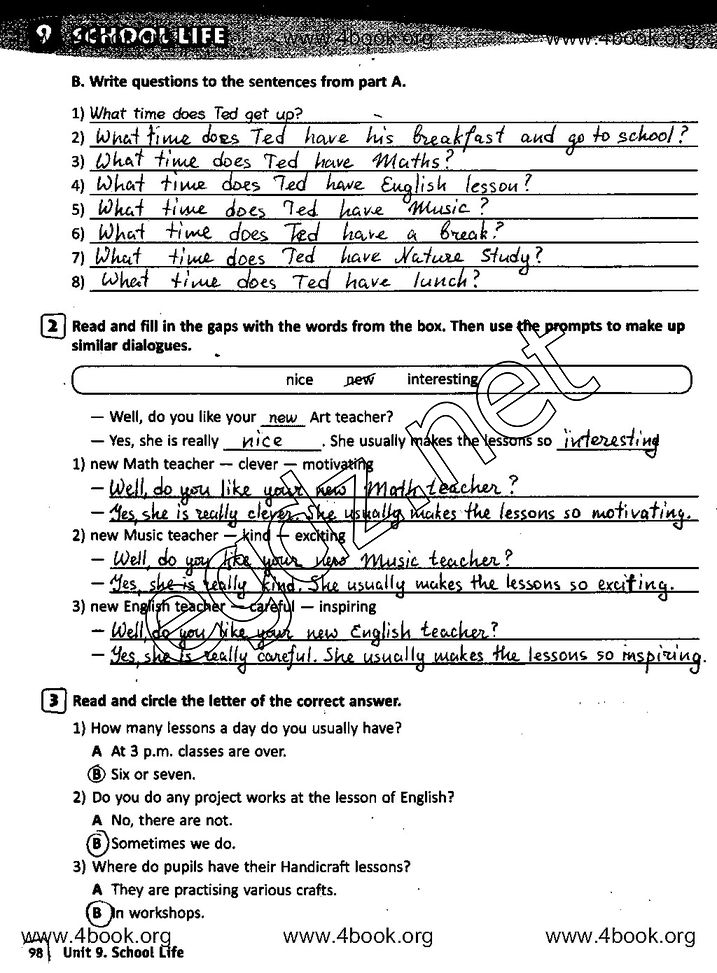 9 SCHOOL LIFE
www.4book.org www.4book.org www.4book.org
B. Write questions to the sentences from part A.
1) What time does Ted get up?
2) What time does Ted have his breakfast and go to school?
3) What time does Ted have Maths?
4) What time does Ted have English lesson?
5) What time does Ted have Music?
6) What time does Ted have a break?
7) What time does Ted have Nature Study?
8) What time does Ted have lunch?
2 Read and fill in the gaps with the words from the box. Then use the prompts to make up
similar dialogues.
nice new interesting
— Well, do you like your new Art teacher?
— Yes, she is really nice. She usually makes the lessons so interesting
1) new Math teacher — clever — motivating
— Well, do you like your new Math teacher?
— Yes, she is really clever. She usually makes the lessons so motivating.
2) new Music teacher — kind — exciting
— Well, do you like your new Music teacher?
— Yes, she is really kind. She usually makes the lessons so exciting.
3) new English teacher — careful — inspiring
— Well, do you like your new English teacher?
— Yes, she is really careful. She usually makes the lessons so inspiring.
egdz.net
3 Read and circle the letter of the correct answer.
1) How many lessons a day do you usually have?
A At 3 p.m. classes are over.
B Six or seven.
2) Do you do any project works at the lesson of English?
A No, there are not.
B Sometimes we do.
3) Where do pupils have their Handicraft lessons?
A They are practising various crafts.
B In workshops.
www.4book.org www.4book.org www.4book.org
98 Unit 9. School Life